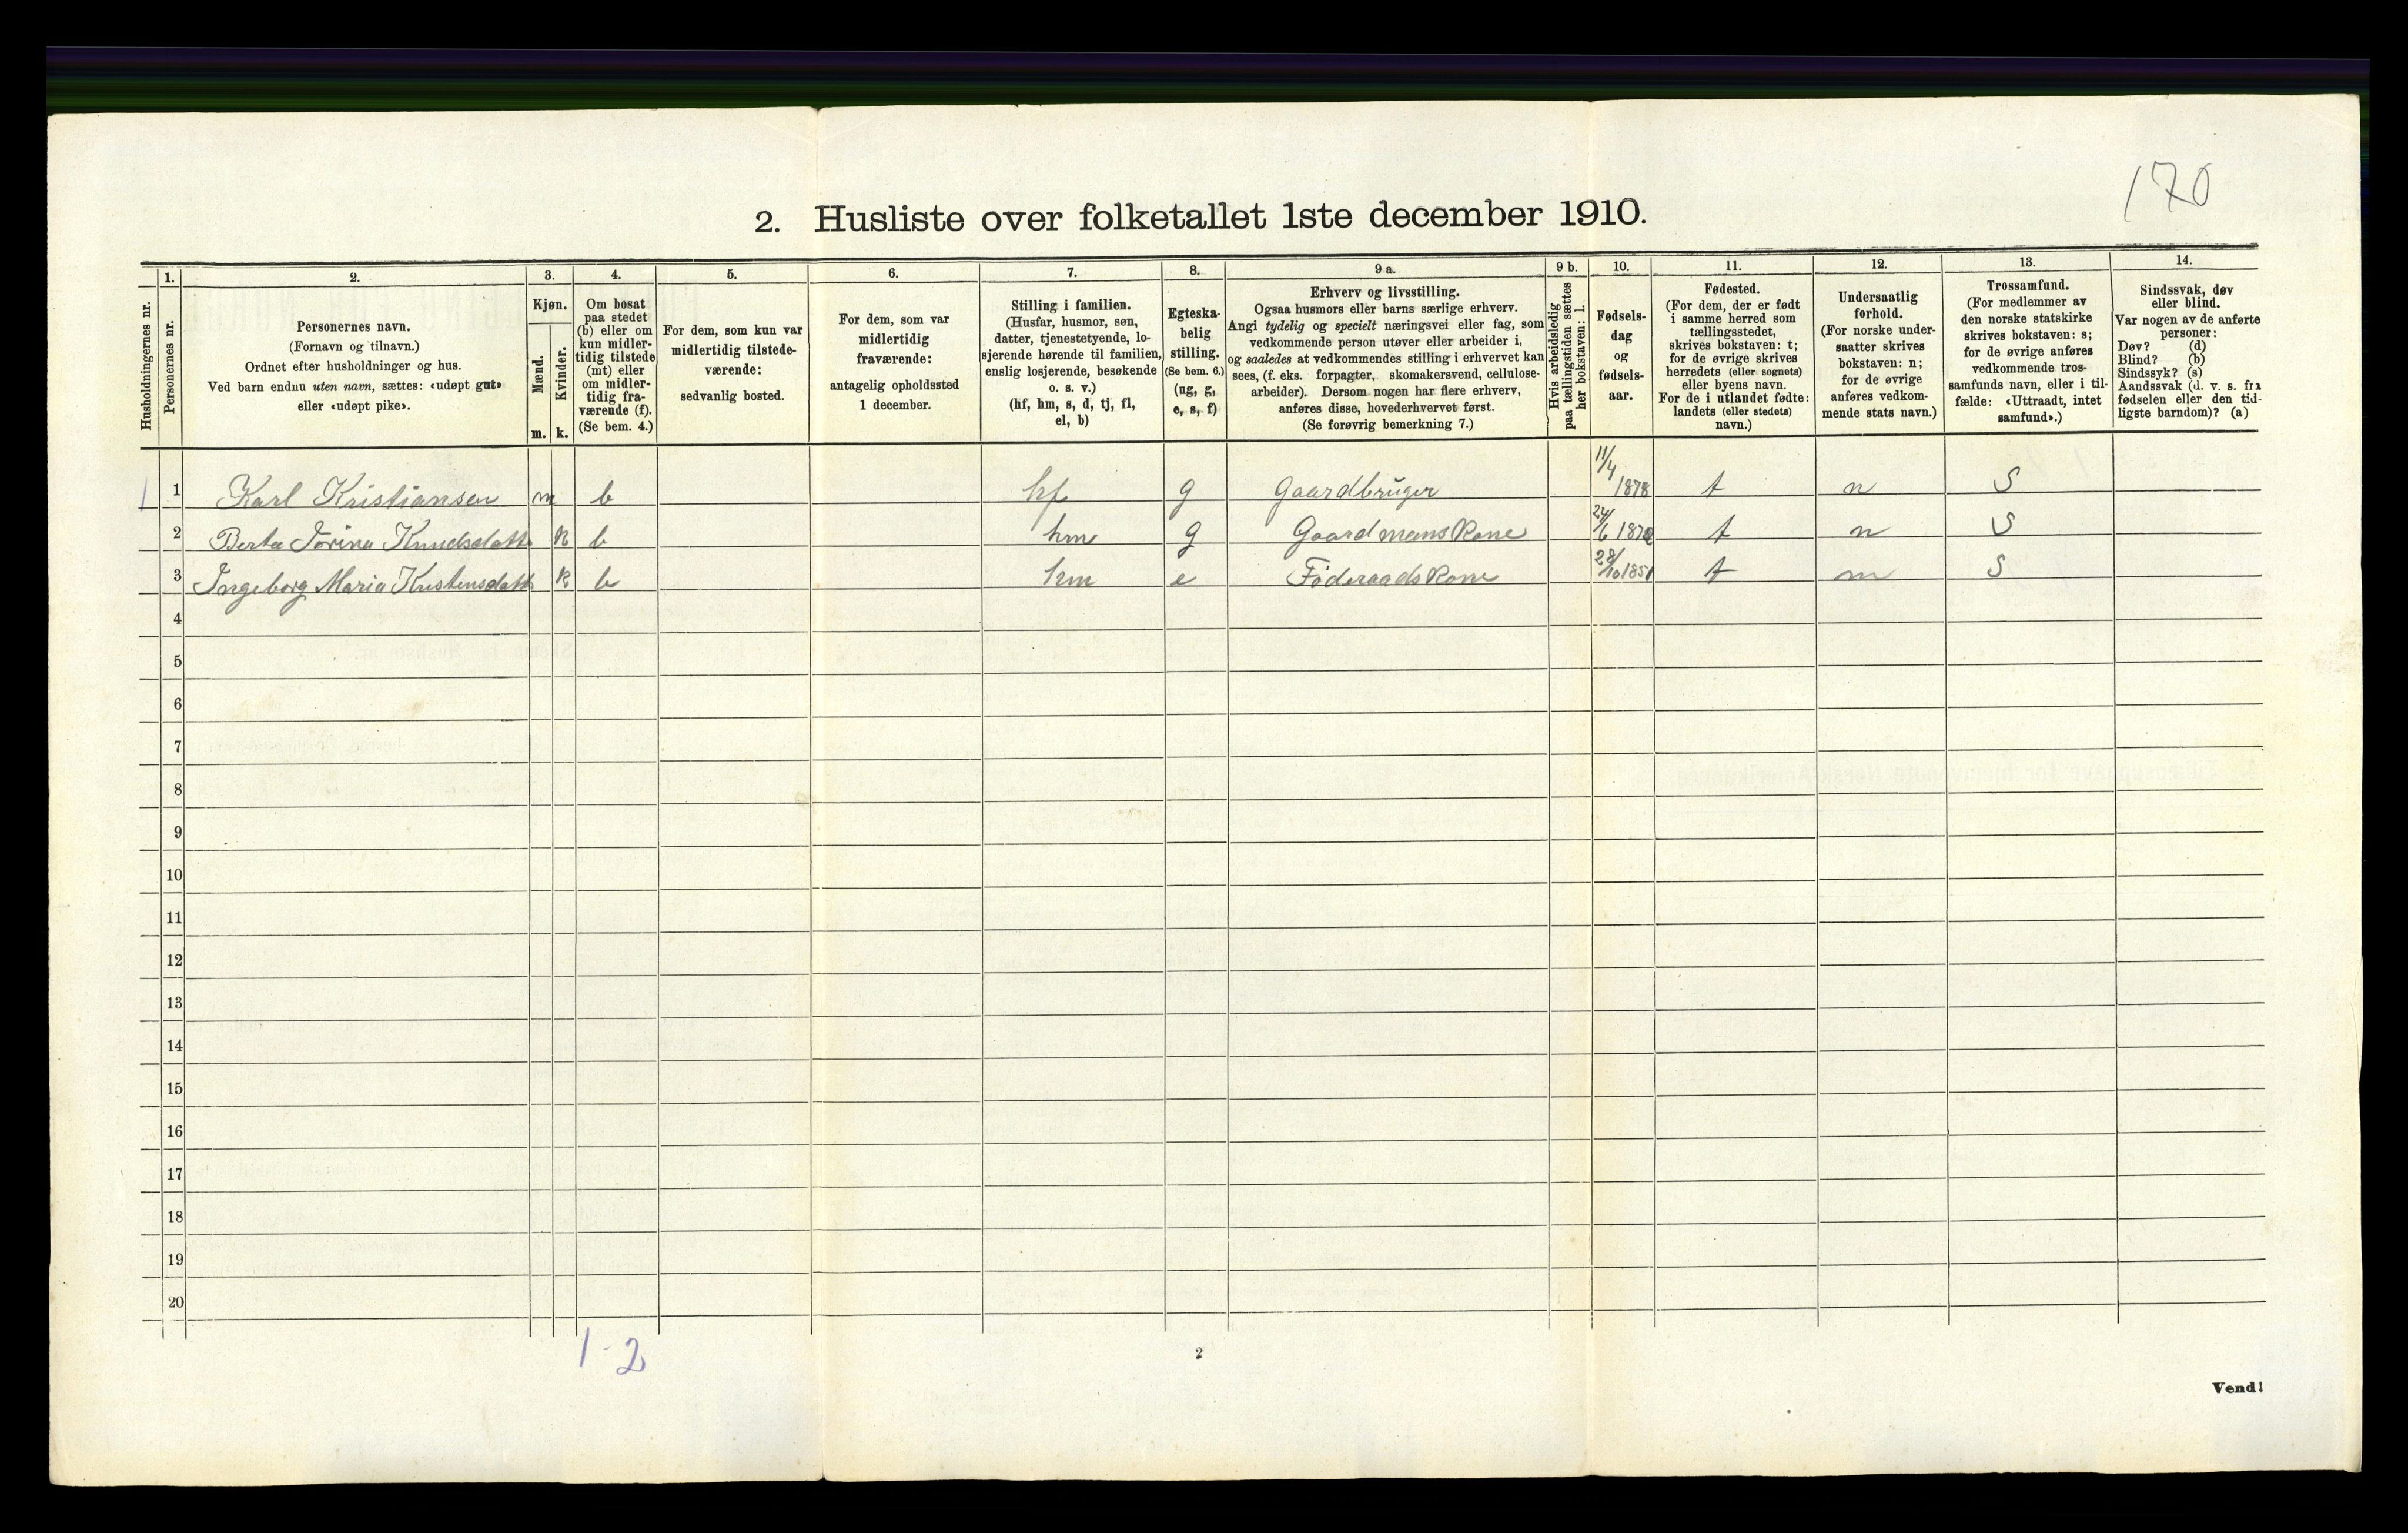 170
2. Husliste over folketallet 1ste december 1910.
Husholdningernes nr.
1.
Personernes nr.
2.
Personernes navn.
(Fornavn og tilnavn.)
Ordnet efter husholdninger og hus.
Ved barn endnu uten navn, sættes: «udøpt gut»
eller «udøpt pike».
3.
Kjøn.
Mænd.
m.
Kvinder.
k.
4.
Om bosat
paa stedet
(b) eller om
kun midler-
tidig tilstede
(mt) eller
om midler-
tidig fra-
værende (f).
(Se bem. 4.)
5.
For dem, som kun var
midlertidig tilstede-
værende:
sedvanlig bosted.
6.
For dem, som var
midlertidig
fraværende:
antagelig opholdssted
1 december.
7.
Stilling i familien.
(Husfar, husmor, søn,
datter, tjenestetyende, lo-
sjerende hørende til familien,
enslig losjerende, besøkende
o. s. v.)
(hf, hm, s, d, tj, fl,
el, b)
8.
Egteska-
belig
stilling.
(Se bem. 6.)
(ug, g,
e, s, f)
9 a.
Erhverv og livsstilling.
Ogsaa husmors eller barns særlige erhverv.
Angi tydelig og specielt næringsvei eller fag, som
vedkommende person utøver eller arbeider i,
og saaledes at vedkommendes stilling i erhvervet kan
sees, (f. eks. forpagter, skomakersvend, cellulose-
arbeider). Dersom nogen har flere erhverv,
anføres disse, hovederhvervet først.
(Se forøvrig bemerkning 7.)
9 b.
Hvis arbeidsledig
paa tællingstiden sættes
her bokstaven: l.
10.
Fødsels-
dag
og
fødsels-
aar.
11.
Fødested.
(For dem, der er født
i samme herred som
tællingsstedet,
skrives bokstaven: t;
for de øvrige skrives
herredets (eller sognets)
eller byens navn.
For de i utlandet fødte:
landets (eller stedets)
navn.)
12.
Undersaatlig
forhold.
(For norske under-
saatter skrives
bokstaven: n;
for de øvrige
anføres vedkom-
mende stats navn.)
13.
Trossamfund.
(For medlemmer av
den norske statskirke
skrives bokstaven: s;
for de øvrige anføres
vedkommende tros-
samfunds navn, eller i til-
fælde: «Uttraadt, intet
samfund».)
14.
Sindssvak, døv
eller blind.
Var nogen av de anførte
personer:
Døv? (d)
Blind? (b)
Sindssyk? (s)
Aandssvak (d. v. s. fra
fødselen eller den tid-
ligste barndom)? (a)
1 1 Karl Kristiansen m b hf g Gaardbruger 11/4 1878 t n S
2 Berta Jorina Knudsdatt k b hm g Gaardmanskone 24/6 t n S
3 Ingeborg Maria Kristensdatt k b hm e Føderaadskone 28/10 1851 t n S
4
5
6
7
8
9
10
11
12
13
14
15
16
17
18
19
20
1-2
2
Vend!